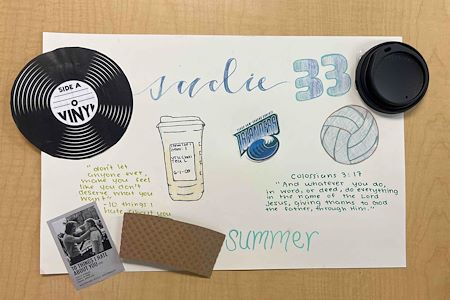 SIDE A
VINYL
sadie 33
"don't let
anyone ever
make you feel
like you don't
deserve what you
want"
- 10 things i
hate about you
Colossians 3:17
"And whatever you do,
in word, or deed, do everything
in the name of the Lord
Jesus, giving thanks to God
the father, through Him."
10 THINGS I HATE
ABOUT YOU
summer